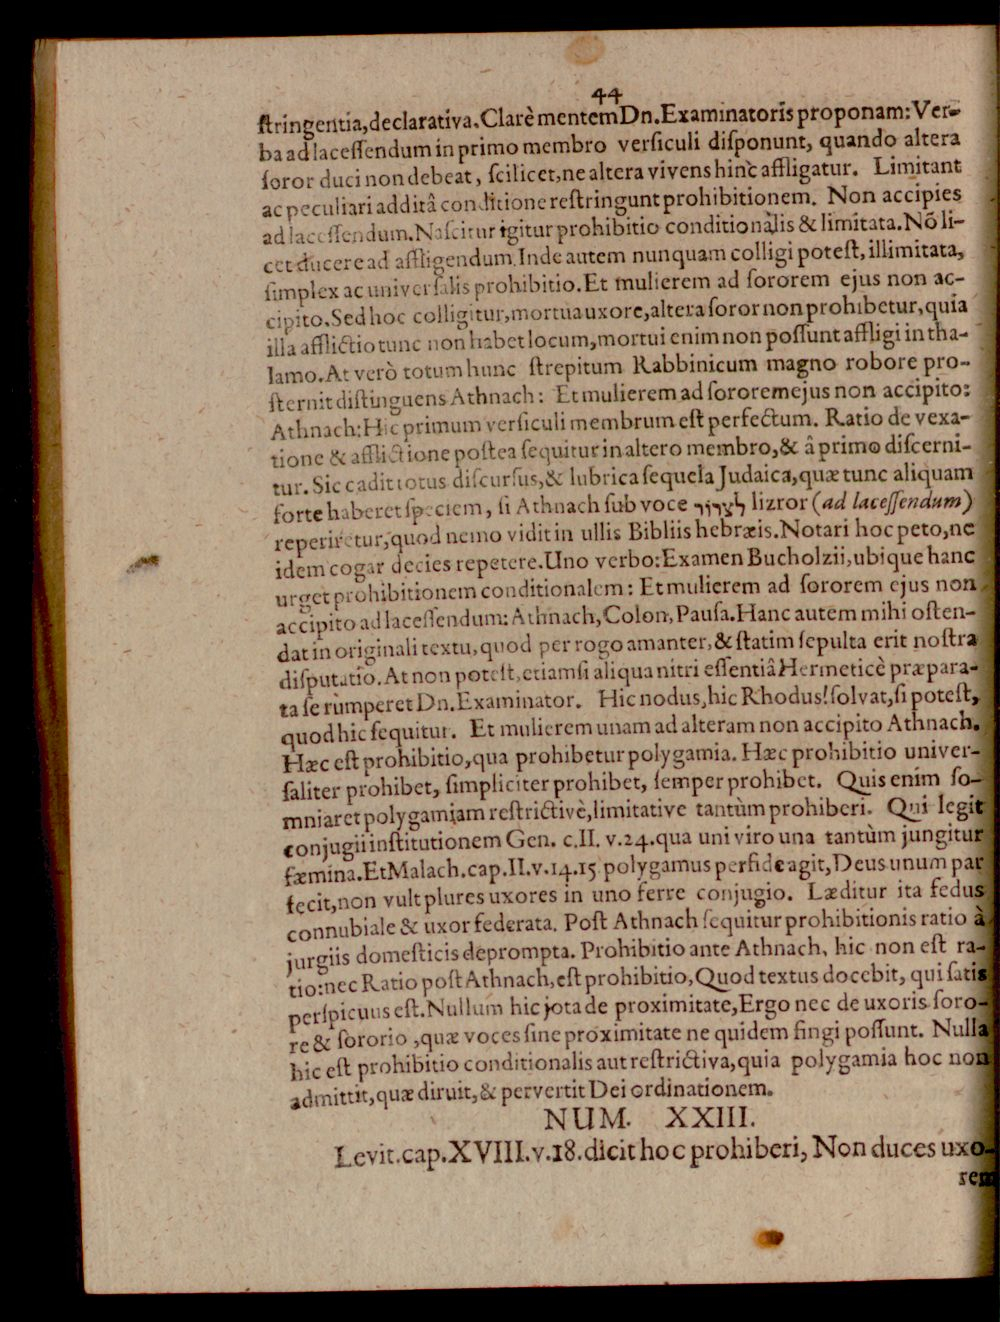 44
ſtringentia,declarativa.Clarè mentem Dn.Examinatoris proponam:Ver-
ba ad laceſſendum in primo membro verſiculi diſponunt, quando altera
ſoror duci non debeat, ſcilicet,ne altera vivens hinc affligatur. Limitant
ac peculiari additâ conditione reſtringunt prohibitionem. Non accipies
ad laceſſendum.Naſcitur igitur prohibitio conditionalis & limitata.Nõ li-
cet ducere ad affligendum.Inde autem nunquam colligi poteſt, illimitata,
ſimplex ac univerſalis prohibitio.Et mulierem ad ſororem ejus non ac-
cipito.Sed hoc colligitur,mortua uxore,altera ſoror non prohibetur,quia
illa afflictio tunc non habet locum,mortui enim non poſſunt affligi in tha-
lamo.At verò totum hunc ſtrepitum Rabbinicum magno robore pro-
ſternit diſtinguens Athnach: Et mulierem ad ſororem ejus non accipito:
Athnach:Hic primum verſiculi membrum eſt perfectum. Ratio de vexa-
tione & afflictione poſtea ſequitur in altero membro,& â primo diſcerni-
tur. Sic cadit totus diſcurſus,& lubrica ſequela Judaica,quæ tunc aliquam
forte haberet ſpeciem, ſi Athnach ſub voce לצרור lizror (ad laceſſendum)
reperiretur,quod nemo vidit in ullis Bibliis hebræis.Notari hoc peto,ne
idem cogar decies repetere.Uno verbo:Examen Bucholzii,ubique hanc
urget prohibitionem conditionalem: Et mulierem ad ſororem ejus non
accipito ad laceſſendum: Athnach,Colon,Pauſa.Hanc autem mihi oſten-
dat in originali textu,quod per rogo amanter,& ſtatim ſepulta erit noſtra
diſputatio.At non poteſt,etiamſi aliqua nitri eſſentiâ Hermeticè præpara-
ta ſe rumperet Dn.Examinator. Hic nodus,hic Rhodus!ſolvat,ſi poteſt,
quod hic ſequitur. Et mulierem unam ad alteram non accipito Athnach.
Hæc eſt prohibitio,qua prohibetur polygamia. Hæc prohibitio univer-
ſaliter prohibet, ſimpliciter prohibet, ſemper prohibet. Quis enim ſo-
mniaret polygamiam reſtrictivè,limitative tantùm prohiberi. Qui legit
conjugii inſtitutionem Gen. c.II. v.24.qua uni viro una tantùm jungitur
fæmina.Et Malach.cap.II.v.14.15 polygamus perfide agit,Deus unum par
fecit,non vult plures uxores in uno ferre conjugio. Læditur ita fedus
connubiale & uxor federata. Poſt Athnach ſequitur prohibitionis ratio à
jurgiis domeſticis deprompta. Prohibitio ante Athnach, hic non eſt ra-
tio:nec Ratio poſt Athnach,eſt prohibitio,Quod textus docebit, qui ſatis
perſpicuus eſt.Nullum hic jota de proximitate,Ergo nec de uxoris ſoro-
re & ſororio ,quæ voces ſine proximitate ne quidem fingi poſſunt. Nulla
hic eſt prohibitio conditionalis aut reſtrictiva,quia polygamia hoc non
admittit,quæ diruit,& pervertit Dei ordinationem.
NUM. XXIII.
Levit.cap.XVIII.v.18.dicit hoc prohiberi, Non duces uxo-
rem